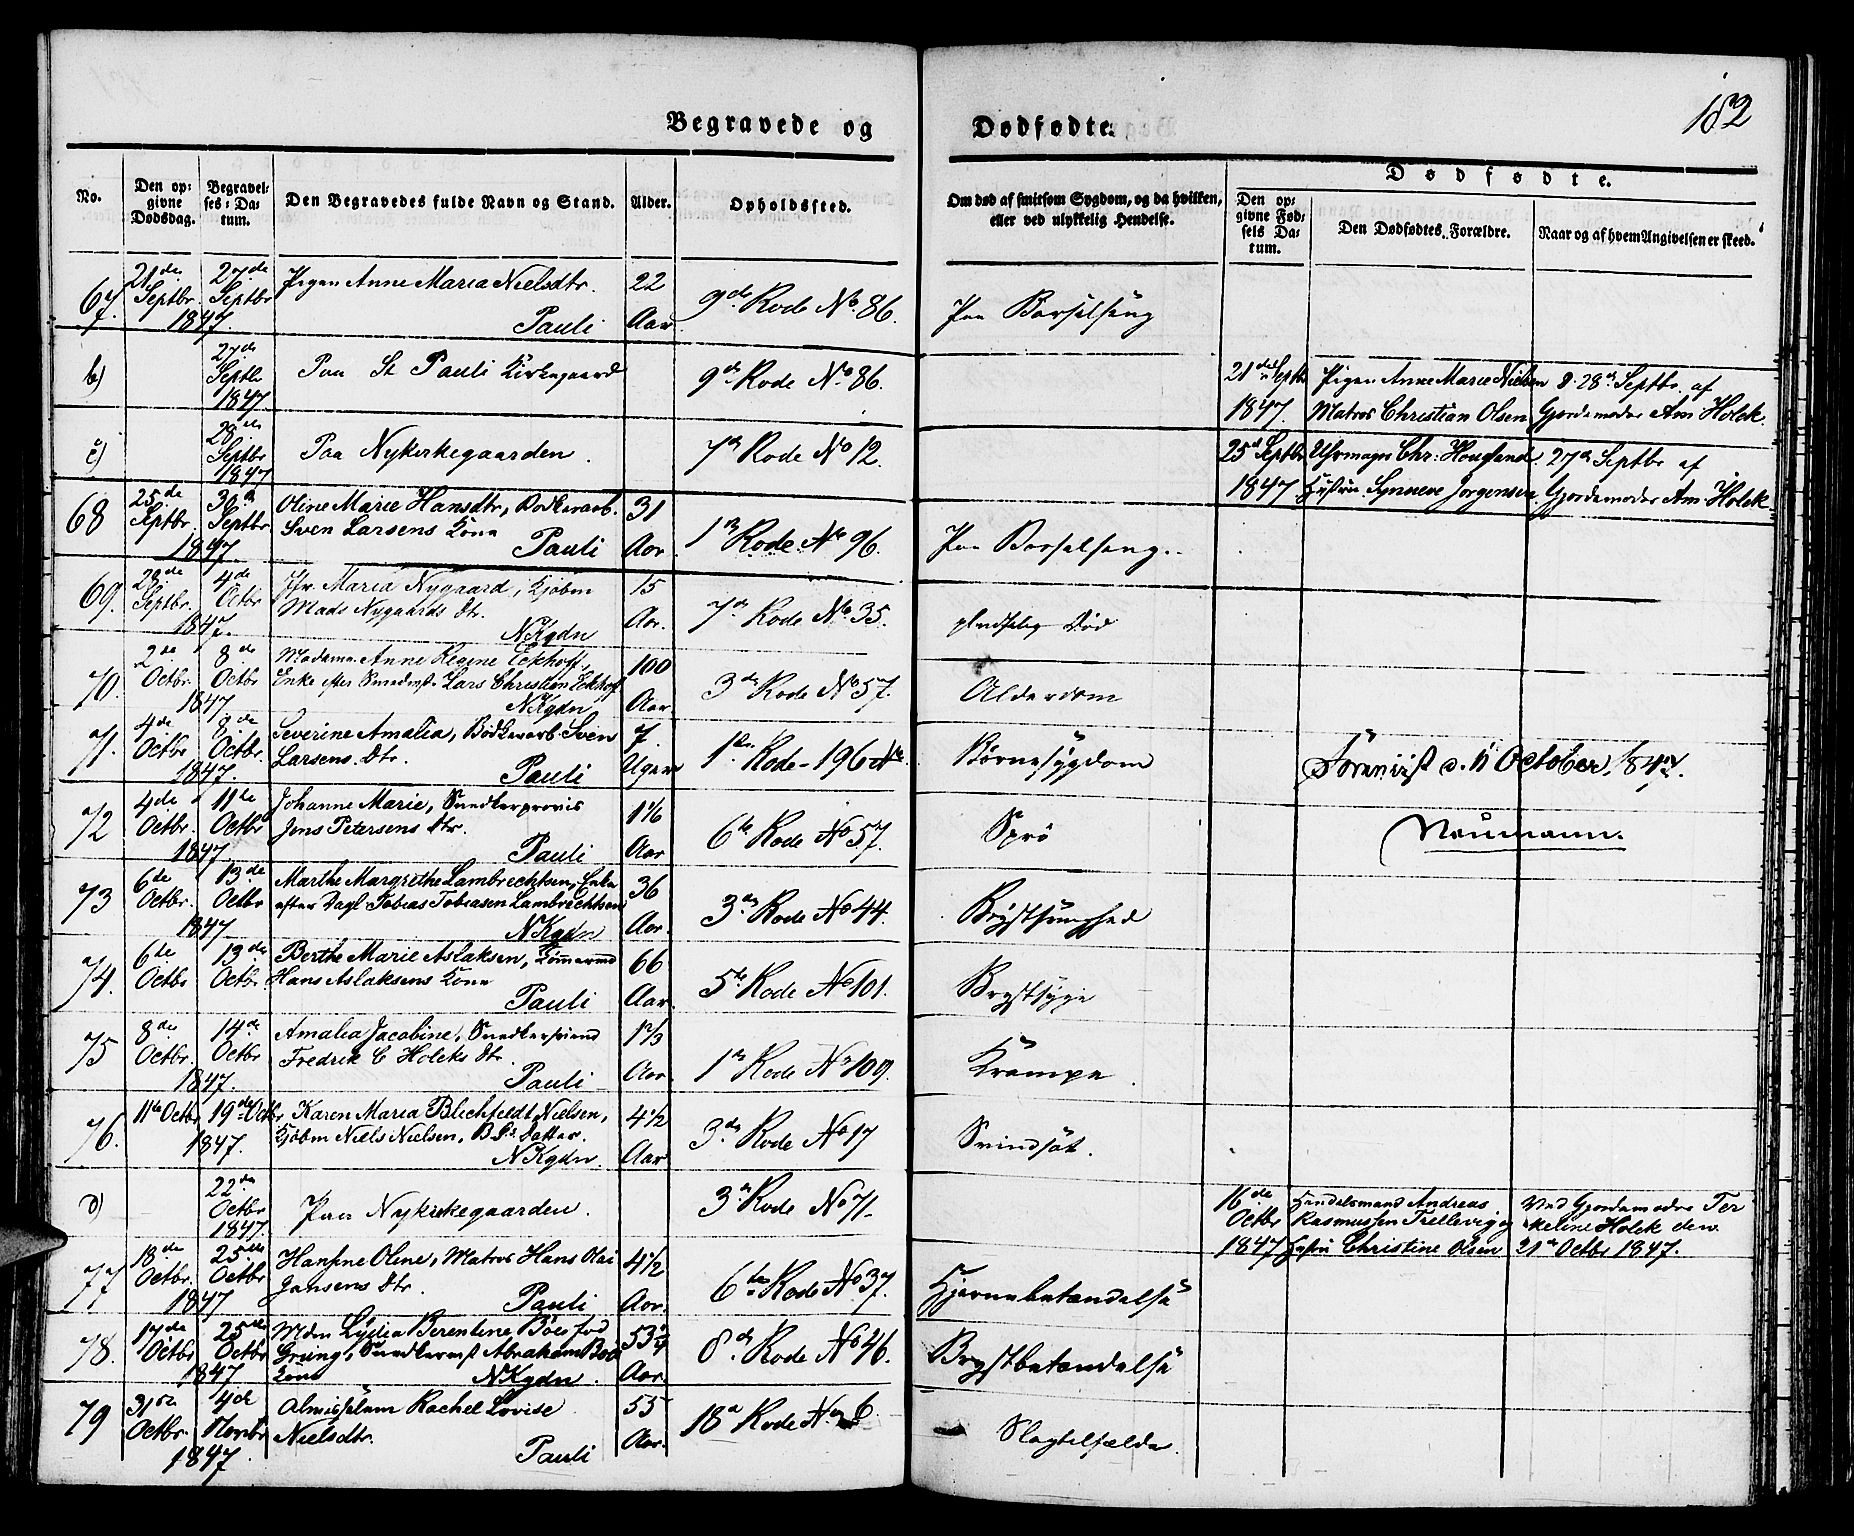 182
Begravede og Dødfødte.
Dødfødte.
No.
Den op-
givne
Dødsdag.
Begravel-
ses-Da-
tum.
Den Begravedes fulde Navn og Stand.
Alder.
Opholdssted.
Om død af smitsom Sygdom, og da hvilken,
eller ved ulykkelig Hendelse.
Den op-
givne Fød-
sels Da-
tum.
Den Dødfødtes Forældre.
Naar og af hvem Angivelsen er skeed.
67. 21de Septbr. 27de Septbr 1847. Pigen Anne Maria Nielsdtr. Pauli 22 Aar 9de Rode No. 86. Paa Barselseng
b) 27de Septbr 1847. Paa St Pauli Kirkegaard 9de Rode No 86. 21de Septbr 1847. Pigen Anne Marie Nielsen 28de Septbr. af
Matros Christian Olsen Gjordemoder Am Holck.
c) 28de Septbr 1847 Paa Nykirkegaarden. 7de Rode No 12. 25de Septbr 1847 Uhrmager Chr: Hougland 27de Septbr af
Hustru Synneve Jørgensen Gjordemoder Am. Holck
68 25de Septbr. 30de Septbr 1847 Oline Marie Hansdtr, Bødkerarb.
Sven Larsens Kone Pauli 31 Aar. 1ste Rode No 96. Paa Barselseng.
69. 28de Septbr. 4de Octbr 1847. Jfr. Maria Nygaard, Kjøbm
Mads Nygaards Dtr. NKgdn 15 Aar. 7de Rode No 35. pludselig Død
70. 2de Octbr. 8de Octbr 1847 Madame Anne Regine Eckhoff,
Enke efter Lars Christian Eckhoff
NKgdn 100 Aar. 3de Rode No 57. Alderdom
71. 4de Octbr 8de Octbr. 1847. Severine Amalia, Bødkerarb Sven
Larsens Dtr. Pauli 7 Uger 1ste Rode - 196 Børnesygdom
October 1847.
72 4de Octbr. 11te Octbr 1847 Johanne Marie, Snedkersvend
Jens Petersens Dtr. Pauli 1 1/6 Aar 6te Rode No 57. Neumann.
73 6te Octbr. 13de Octbr 1847 Marthe Margrethe Lambrechtsen, Enke
efter Dagl Tobias Tobiasen Lambrechtsen
NKgdn 36 Aar. 3de Rode No 44. Brystsvaghed
74. 6te Octbr 13de Octbr. Berthe Marie Aslaksen, Tømmermd
Hans Aslaksens Kone
Pauli 66 Aar. 5te Rode No 101. Brystsyge
75 8de Octbr. 14de Octbr 1847. Amalia Jacobine, Snedkersvend
Fredrik C Holcks Dtr.
Pauli 1 2/3 Aar. 1ste Rode No 109. Krampe.
76. 11te Octbr 19de Octbr 1847. Karen Maria Blechfeldt Nielsen,
Kjøbm Niels Nielsen, B S: Datter.
NKgdn. 4 1/2 Aar 3de Rode No 17 Svindsot.
d) 22de Octbr 1847. Paa Nykirkegaarden. 3de Rode No 71. 16de Octbr 1847 Handelsmand Andreas
Rasmussen Trellevig og
Hustru Christine Olsen Ved Gjordemodre Ter
keline Holck den
21de Octbr 1847.
77 18de Octbr. 25de Octbr 1847 Hansine Oline, Matros Hans Olai
Jansens Dtr. Pauli 4 1/2 Aar. 6te Rode No 37. Hjernebetændelse
78. 17de Octbr 25de Octbr 1847 Mdm Lydia Berentine Böes fød
Grüng, Snedkermst Abraham Böes
Kone NKgdn. 53 3/4 Aar. 8de Rode No 46. Brystbetændelse
79 31te Octbr. 4de Novbr 1847. Almisselem Rachel Lovise
Nielsdtr. Pauli 55 Aar. 18de Rode No 6. Slagtilfælde.